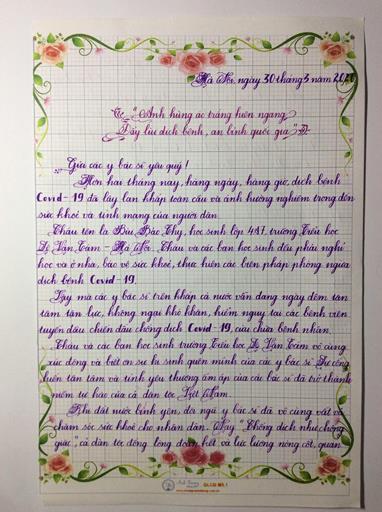 Hà Nội, ngày 30 tháng 3 năm 2020
"Anh hùng áo trắng hiên ngang
Đẩy lùi dịch bệnh, an bình quốc gia"
Gửi các y bác sĩ yêu quý!
Hơn hai tháng nay, hàng ngày, hàng giờ, dịch bệnh
Covid-19 đã lây lan khắp toàn cầu và ảnh hưởng nghiêm trọng đến
sức khoẻ và tính mạng của người dân.
Cháu tên là Bùi Bảo Thy, học sinh lớp 4A7, trường Tiểu học
Lê Văn Tám - Hà Nội. Cháu và các bạn học sinh đều phải nghỉ
học và ở nhà, bảo vệ sức khoẻ, thực hiện các biện pháp phòng ngừa
dịch bệnh Covid-19.
Vậy mà các y bác sĩ trên khắp cả nước vẫn đang ngày đêm tận
tâm tận lực, không ngại khó khăn, hiểm nguy tại các bệnh viện
tuyến đầu chiến đấu chống dịch Covid-19, cứu chữa bệnh nhân.
Cháu và các bạn học sinh trường Tiểu học Lê Văn Tám vô cùng
xúc động và biết ơn sự hi sinh quên mình của các y bác sĩ. Sự cống
hiến tận tâm và tình yêu thương ấm áp của các bác sĩ đã trở thành
niềm tự hào của cả dân tộc Việt Nam.
Khi đất nước bình yên, đội ngũ y bác sĩ đã vô cùng vất vả
chăm sóc sức khoẻ cho nhân dân. Nay "Chống dịch như chống
giặc", cả dân tộc đồng lòng đoàn kết và lực lượng nòng cốt, quan